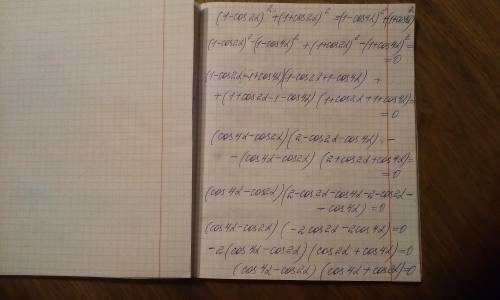 (1-cos2α)² + (1+cos2α)² = (1-cos4α)² + (1+cos4α)²
(1-cos2α)² - (1-cos4α)² + (1+cos2α)² - (1+cos4α)² =
= 0
(1-cos2α-1+cos4α)(1-cos2α+1-cos4α) +
+ (1+cos2α-1-cos4α)(1+cos2α+1+cos4α) =
= 0
(cos4α-cos2α)(2-cos2α-cos4α) -
- (cos4α-cos2α)(2+cos2α+cos4α) =
= 0
(cos4α-cos2α)(2-cos2α-cos4α-2-cos2α-
- cos4α) = 0
(cos4α-cos2α)(-2cos2α-2cos4α) = 0
-2(cos4α-cos2α)(cos2α+cos4α) = 0
(cos4α-cos2α)(cos4α+cos2α) = 0